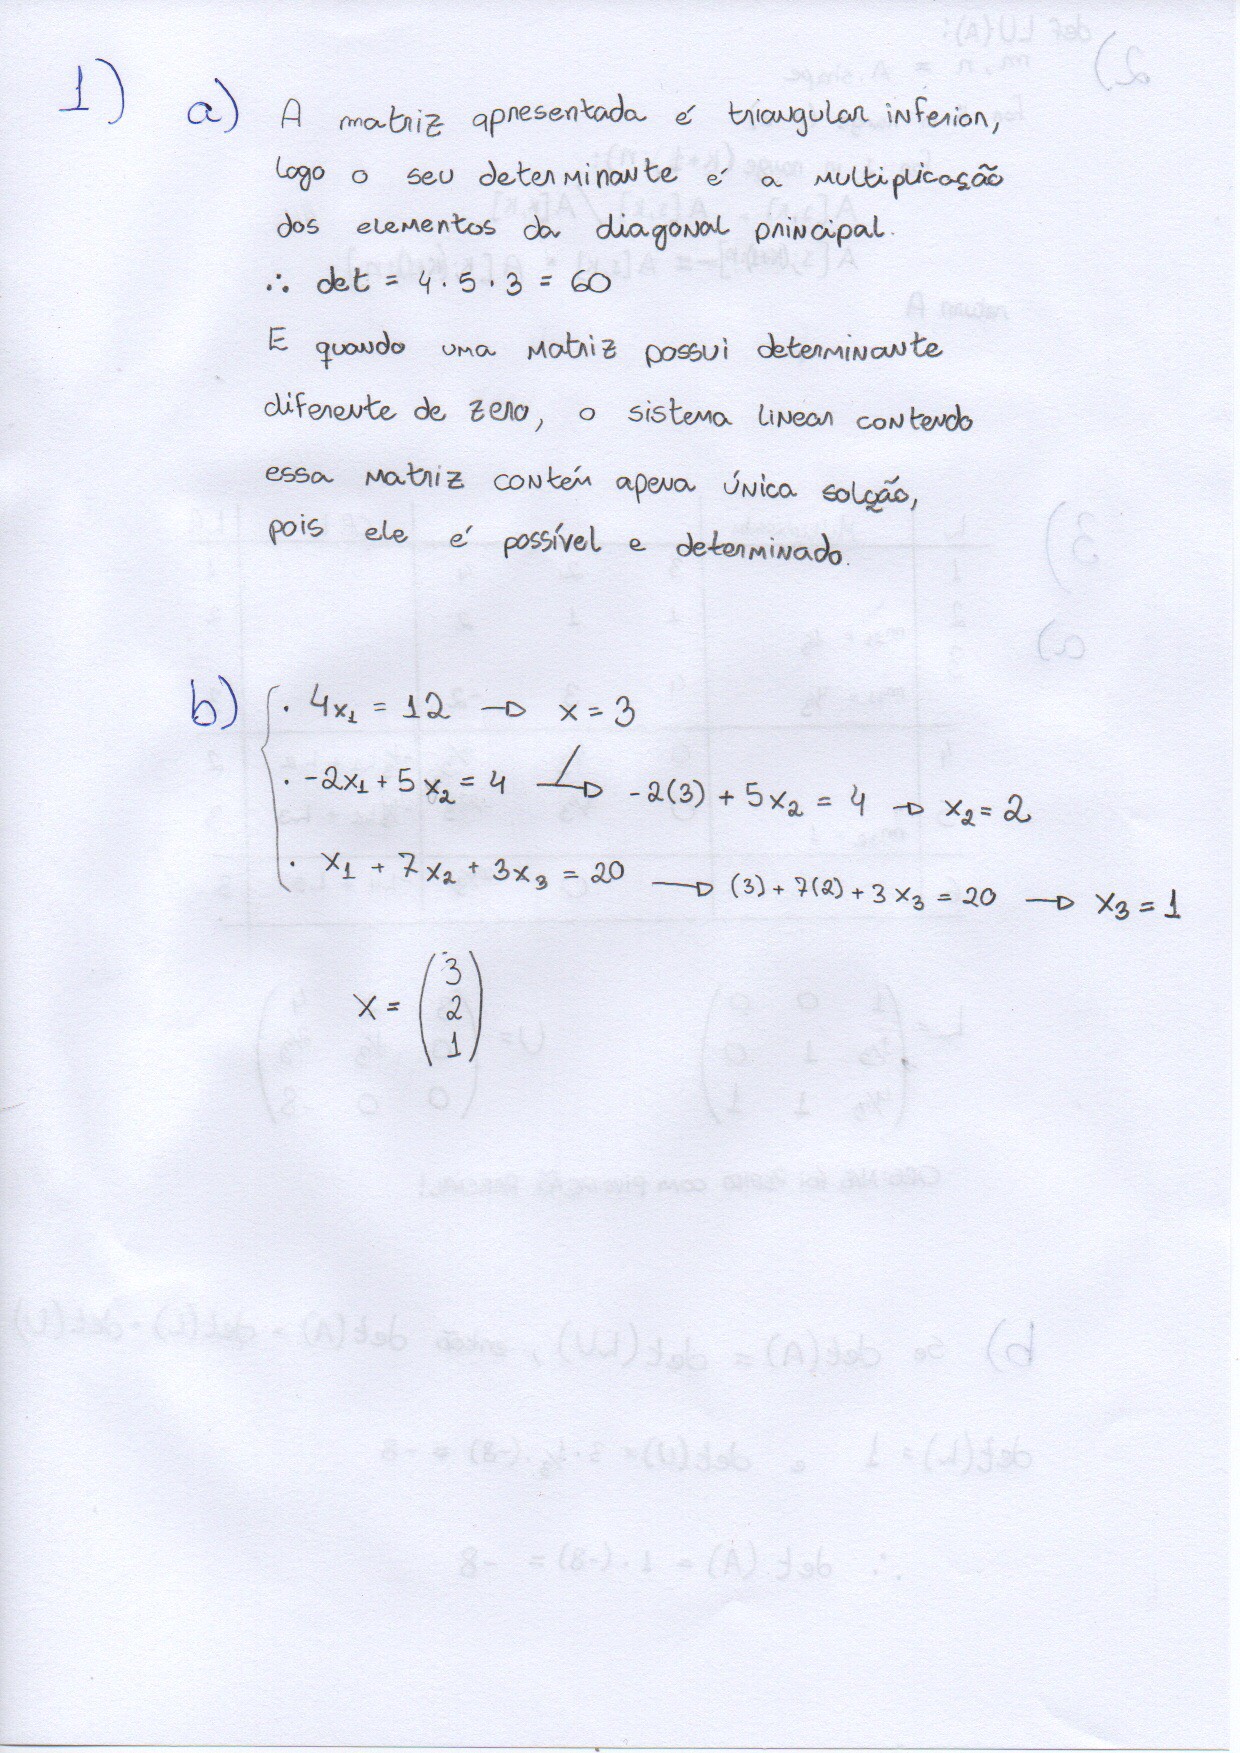 1) a) A matriz apresentada é triangular inferior,
logo o seu determinante é a multiplicação
dos elementos da diagonal principal.
∴ det = 4 · 5 · 3 = 60
E quando uma matriz possui determinante
diferente de zero, o sistema linear contendo
essa matriz contém apena única solção,
pois ele é possível e determinado.
b) · 4x₁ = 12 → x = 3
· -2x₁ + 5x₂ = 4 → -2(3) + 5x₂ = 4 → x₂ = 2
· x₁ + 7x₂ + 3x₃ = 20 → (3) + 7(2) + 3x₃ = 20 → x₃ = 1
X = (3
2
1)